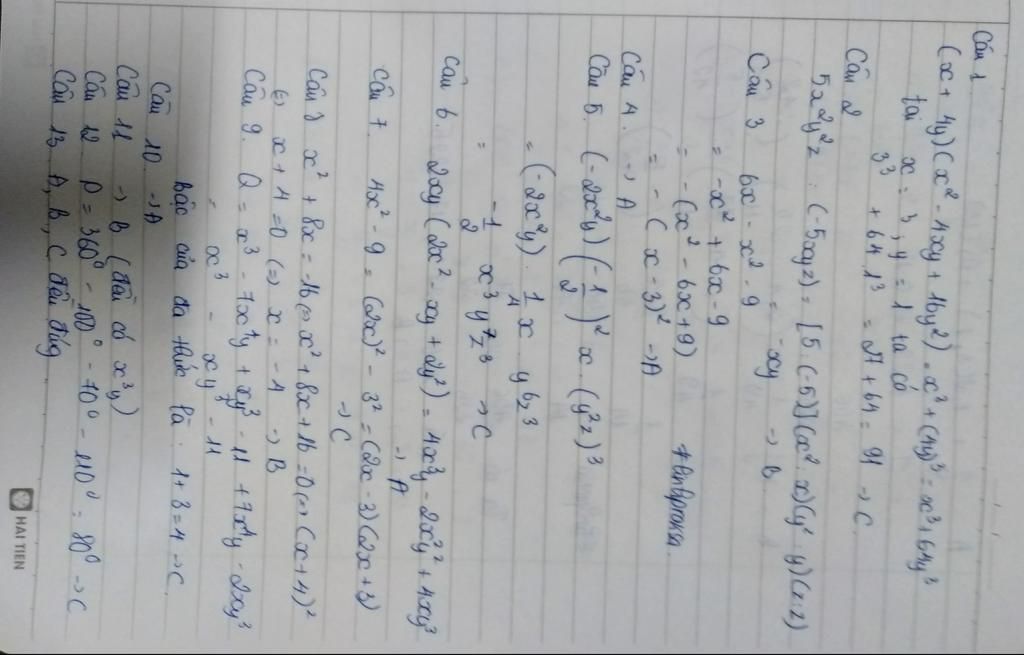 Câu 1
(x + 4y)(x² - 4xy + 16y²) = x³ + (4y)³ = x³ + 64y³
tại x = 3, y = 1 ta có
3³ + 64.1³ = 27 + 64 = 91 → C
Câu 2
5x²y²z : (-5xyz) = [5:(-5)](x²:x)(y²:y)(z:z)
= -xy → B
Câu 3 6x - x² - 9
= -x² + 6x - 9
= -(x² - 6x + 9)
= -(x - 3)² → A
Câu 4. → A
Câu 5. (-2x²y)(-1/2)² x.(y²z)³
= (-2x²y). 1/4 x y⁶z³
= -1/2 x³y⁷z³ → C
Câu 6. 2xy(2x² - xy + 2y²) = 4x³y - 2x²y² + 4xy³
→ A
Câu 7. 4x² - 9 = (2x)² - 3² = (2x - 3)(2x + 3)
→ C
Câu 8 x² + 8x = -16 ⇔ x² + 8x + 16 = 0 ⇔ (x + 4)²
⇔ x + 4 = 0 ⇔ x = -4 → B
Câu 9. Q = x³ - 7x⁴y + xy³ - 11 + 7x⁴y - 2xy³
= x³ - xy³ - 11
bậc của đa thức là : 1 + 3 = 4 → C
Câu 10 → A
Câu 11 → B (đều có x³y)
Câu 12 D = 360⁰ - 100⁰ - 70⁰ - 110⁰ = 80⁰ → C
Câu 13 A, B, C đều đúng
HAI TIEN